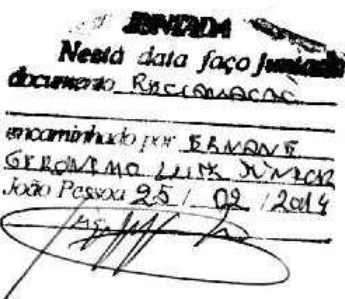 JUNTADA
Nesta data faço juntada
documento Reclamação
encaminhado por ERNANE
GERONIMO LUIZ JÚNIOR
João Pessoa 25 / 02 / 2014